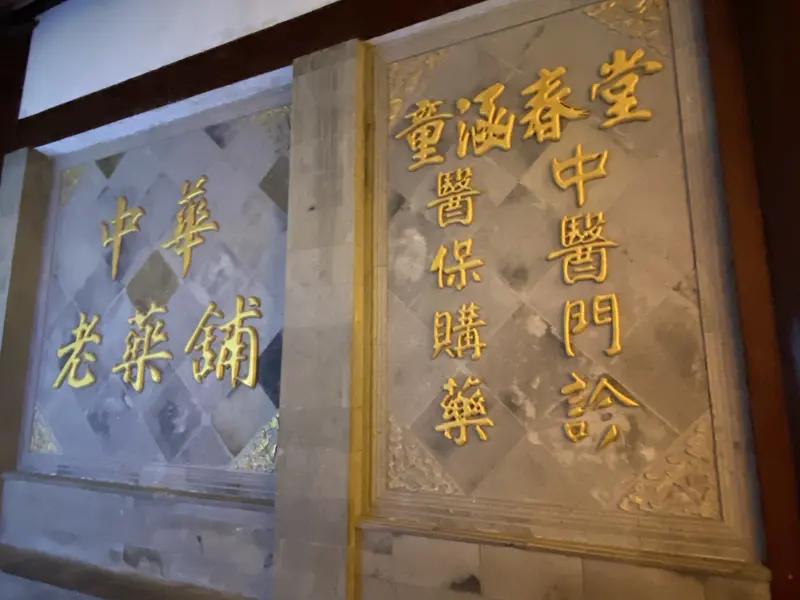 中華
老藥舖
童涵春堂
中醫門診
醫保購藥